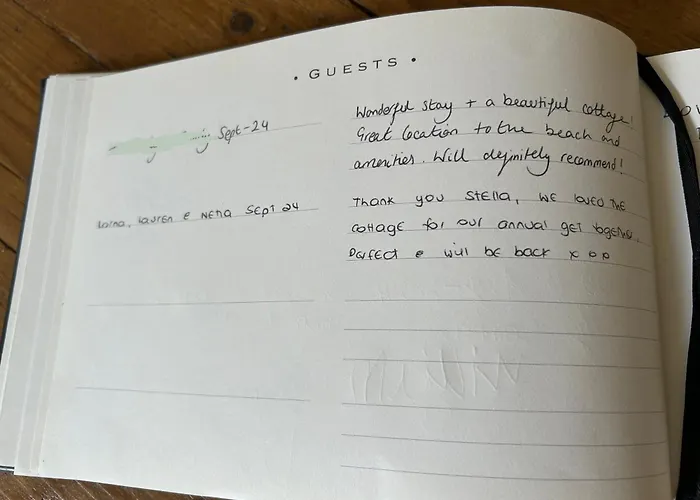 • GUESTS •
Sept-24
Wonderful stay + a beautiful cottage!
Great location to the beach and
amenities. Will definitely recommend!
Lorna, Lauren & Nena Sept 24
Thank you Stella, we loved the
cottage for our annual get together.
Perfect & will be back x